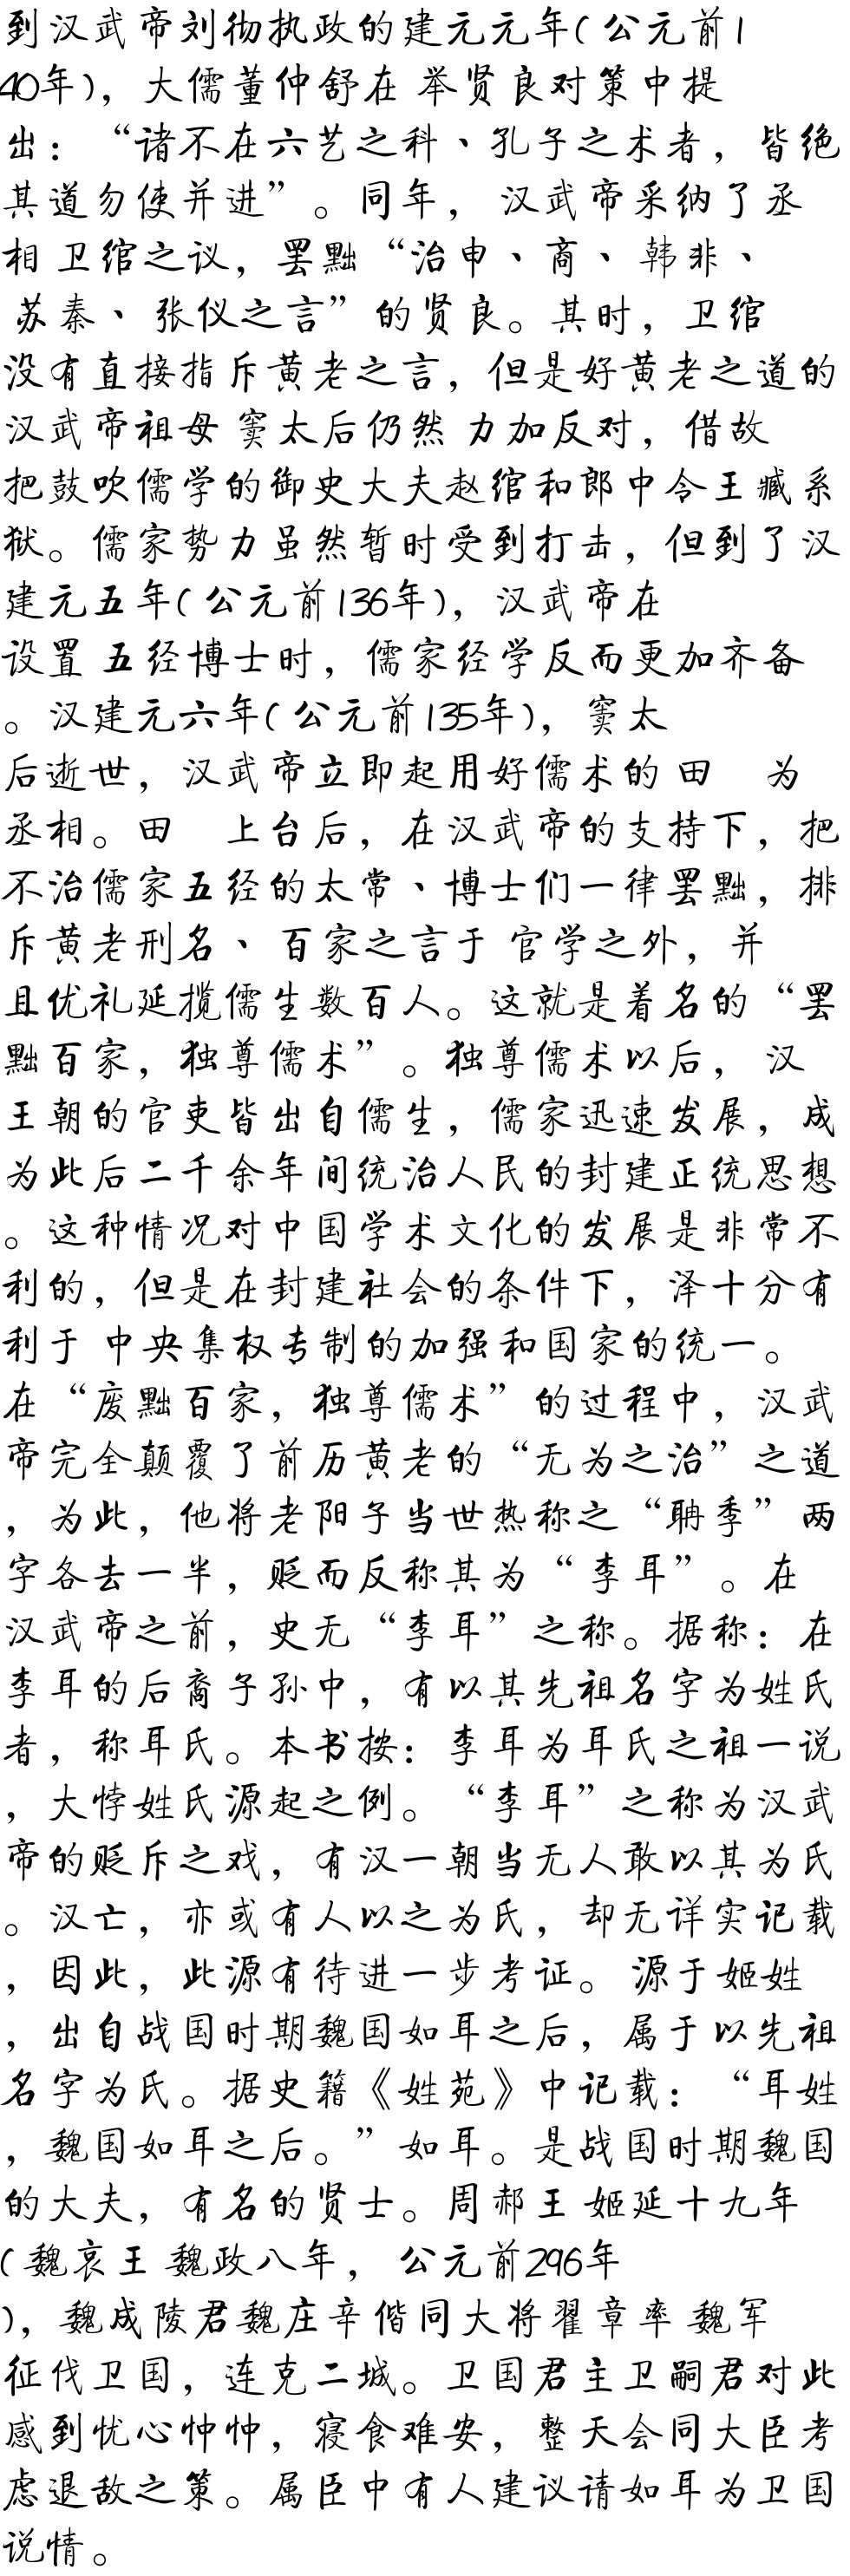 到汉武帝刘彻执政的建元元年(公元前1
40年)，大儒董仲舒在 举贤良对策中提
出：“诸不在六艺之科、孔子之术者，皆绝
其道勿使并进”。同年， 汉武帝采纳了丞
相 卫绾之议，罢黜“治申、商、 韩非、
苏秦、 张仪之言”的贤良。其时，卫绾
没有直接指斥黄老之言，但是好黄老之道的
汉武帝祖母 窦太后仍然 力加反对，借故
把鼓吹儒学的御史大夫赵绾和郎中令王臧系
狱。儒家势力虽然暂时受到打击，但到了汉
建元五年(公元前136年)，汉武帝在
设置 五经博士时，儒家经学反而更加齐备
。汉建元六年(公元前135年)，窦太
后逝世，汉武帝立即起用好儒术的 田 为
丞相。田 上台后，在汉武帝的支持下，把
不治儒家五经的太常、博士们一律罢黜，排
斥黄老刑名、 百家之言于 官学之外，并
且优礼延揽儒生数百人。这就是着名的“罢
黜百家，独尊儒术”。独尊儒术以后， 汉
王朝的官吏皆出自儒生，儒家迅速发展，成
为此后二千余年间统治人民的封建正统思想
。这种情况对中国学术文化的发展是非常不
利的，但是在封建社会的条件下，泽十分有
利于 中央集权专制的加强和国家的统一。
在“废黜百家，独尊儒术”的过程中，汉武
帝完全颠覆了前历黄老的“无为之治”之道
，为此，他将老阳子当世热称之“聃季”两
字各去一半，贬而反称其为“李耳”。在
汉武帝之前，史无“李耳”之称。据称：在
李耳的后裔子孙中，有以其先祖名字为姓氏
者，称耳氏。本书按：李耳为耳氏之祖一说
，大悖姓氏源起之例。“李耳”之称为汉武
帝的贬斥之戏，有汉一朝当无人敢以其为氏
。汉亡，亦或有人以之为氏，却无详实记载
，因此，此源有待进一步考证。 源于姬姓
，出自战国时期魏国如耳之后，属于以先祖
名字为氏。据史籍《姓苑》中记载：“耳姓
，魏国如耳之后。”如耳。是战国时期魏国
的大夫，有名的贤士。周郝王 姬延十九年
(魏哀王 魏政八年， 公元前296年
)，魏成陵君魏庄辛偕同大将翟章率 魏军
征伐卫国，连克二城。卫国君主卫嗣君对此
感到忧心忡忡，寝食难安，整天会同大臣考
虑退敌之策。属臣中有人建议请如耳为卫国
说情。